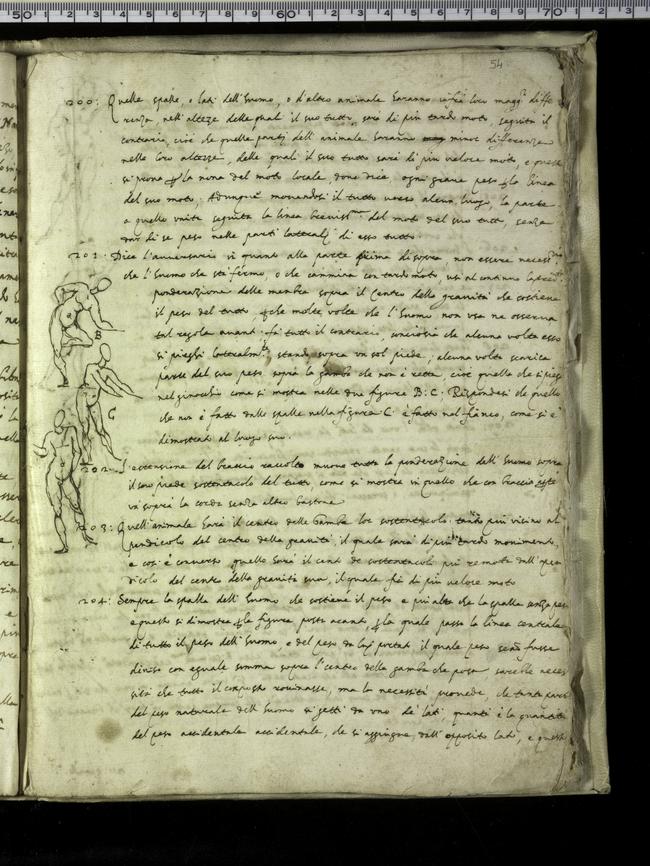 54
200: Quelle spalle, o lati dell'huomo, o d'altro animale saranno infra loro magg.ri diffe
renza, nell'altezze delle quali il suo tutto, sarà di più tardo moto, seguita il
contrario, cioè che quelle parti dell'animale haranno minor differenza
nelle loro altezze, delle quali il suo tutto sarà di più veloce moto, e questo
si prova la nona del moto locale, dove dice: ogni grave pesa la linea
del suo moto: Adunque movendosi il tutto verso alcun luogo, la parte
a quello unita seguita la linea del moto del suo tutto, senza
dar di se peso nelle parti laterali di esso tutto.
201: Dice l'avversario in quanto alla parte prima di sopra, non essere
che l'huomo che sta fermo, o che cammina con tardo moto, usi al continuo la
ponderazione delle membra sopra il centro della gravità che sostiene
il peso del tutto, che molte volte che l'huomo non usa ne osserva
tal regola fa tutto il contrario, conciosia che alcuna volta esso
si pieghi stando sopra un sol piede, alcuna volta scarica
parte del suo peso sopra la gamba che non è retta, cioè quella che si piega
nel ginocchio come si mostra nelle due figure B: C: Rispondesi che quello
che non è fatto dalle spalle nella figura C. è fatto nel fianco, come si è
dimostrato al luogo suo.
202. L'estensione del braccio raccolto muove tutta la ponderazione dell'huomo sopra
il suo piede sostentacolo del tutto, come si mostra in quello che con braccia
va sopra la corda senza altro bastone
203: Quell'animale harà il centro delle gambe loc sostentacolo tanto più vicino al
pendicolo del centro della gravità, il quale sarà di più tardo movimento,
e così è converso quello harà il cent de sostentacoli più remoto dall
dicolo del centro della gravità sua, il quale fia di più veloce moto
204: Sempre la spalla dell'huomo che sostiene il peso è più alta che la spalla senza peso
e questo si dimostra la figura posta acanto, la quale passa la linea centrale
di tutto il peso dell'huomo, e del peso da lui portato il quale peso se non fusse
diviso con eguale somma sopra l'centro della gamba che posa sarebbe neces
sità che tutto il composto rovinasse, ma la necessità provede, che tanta parte
del peso naturale dell'huomo si getti da uno de' lati, quanta è la quantità
del peso accidentale accidentale, che si aggiugne dall'opposito lato, e questo
B
C